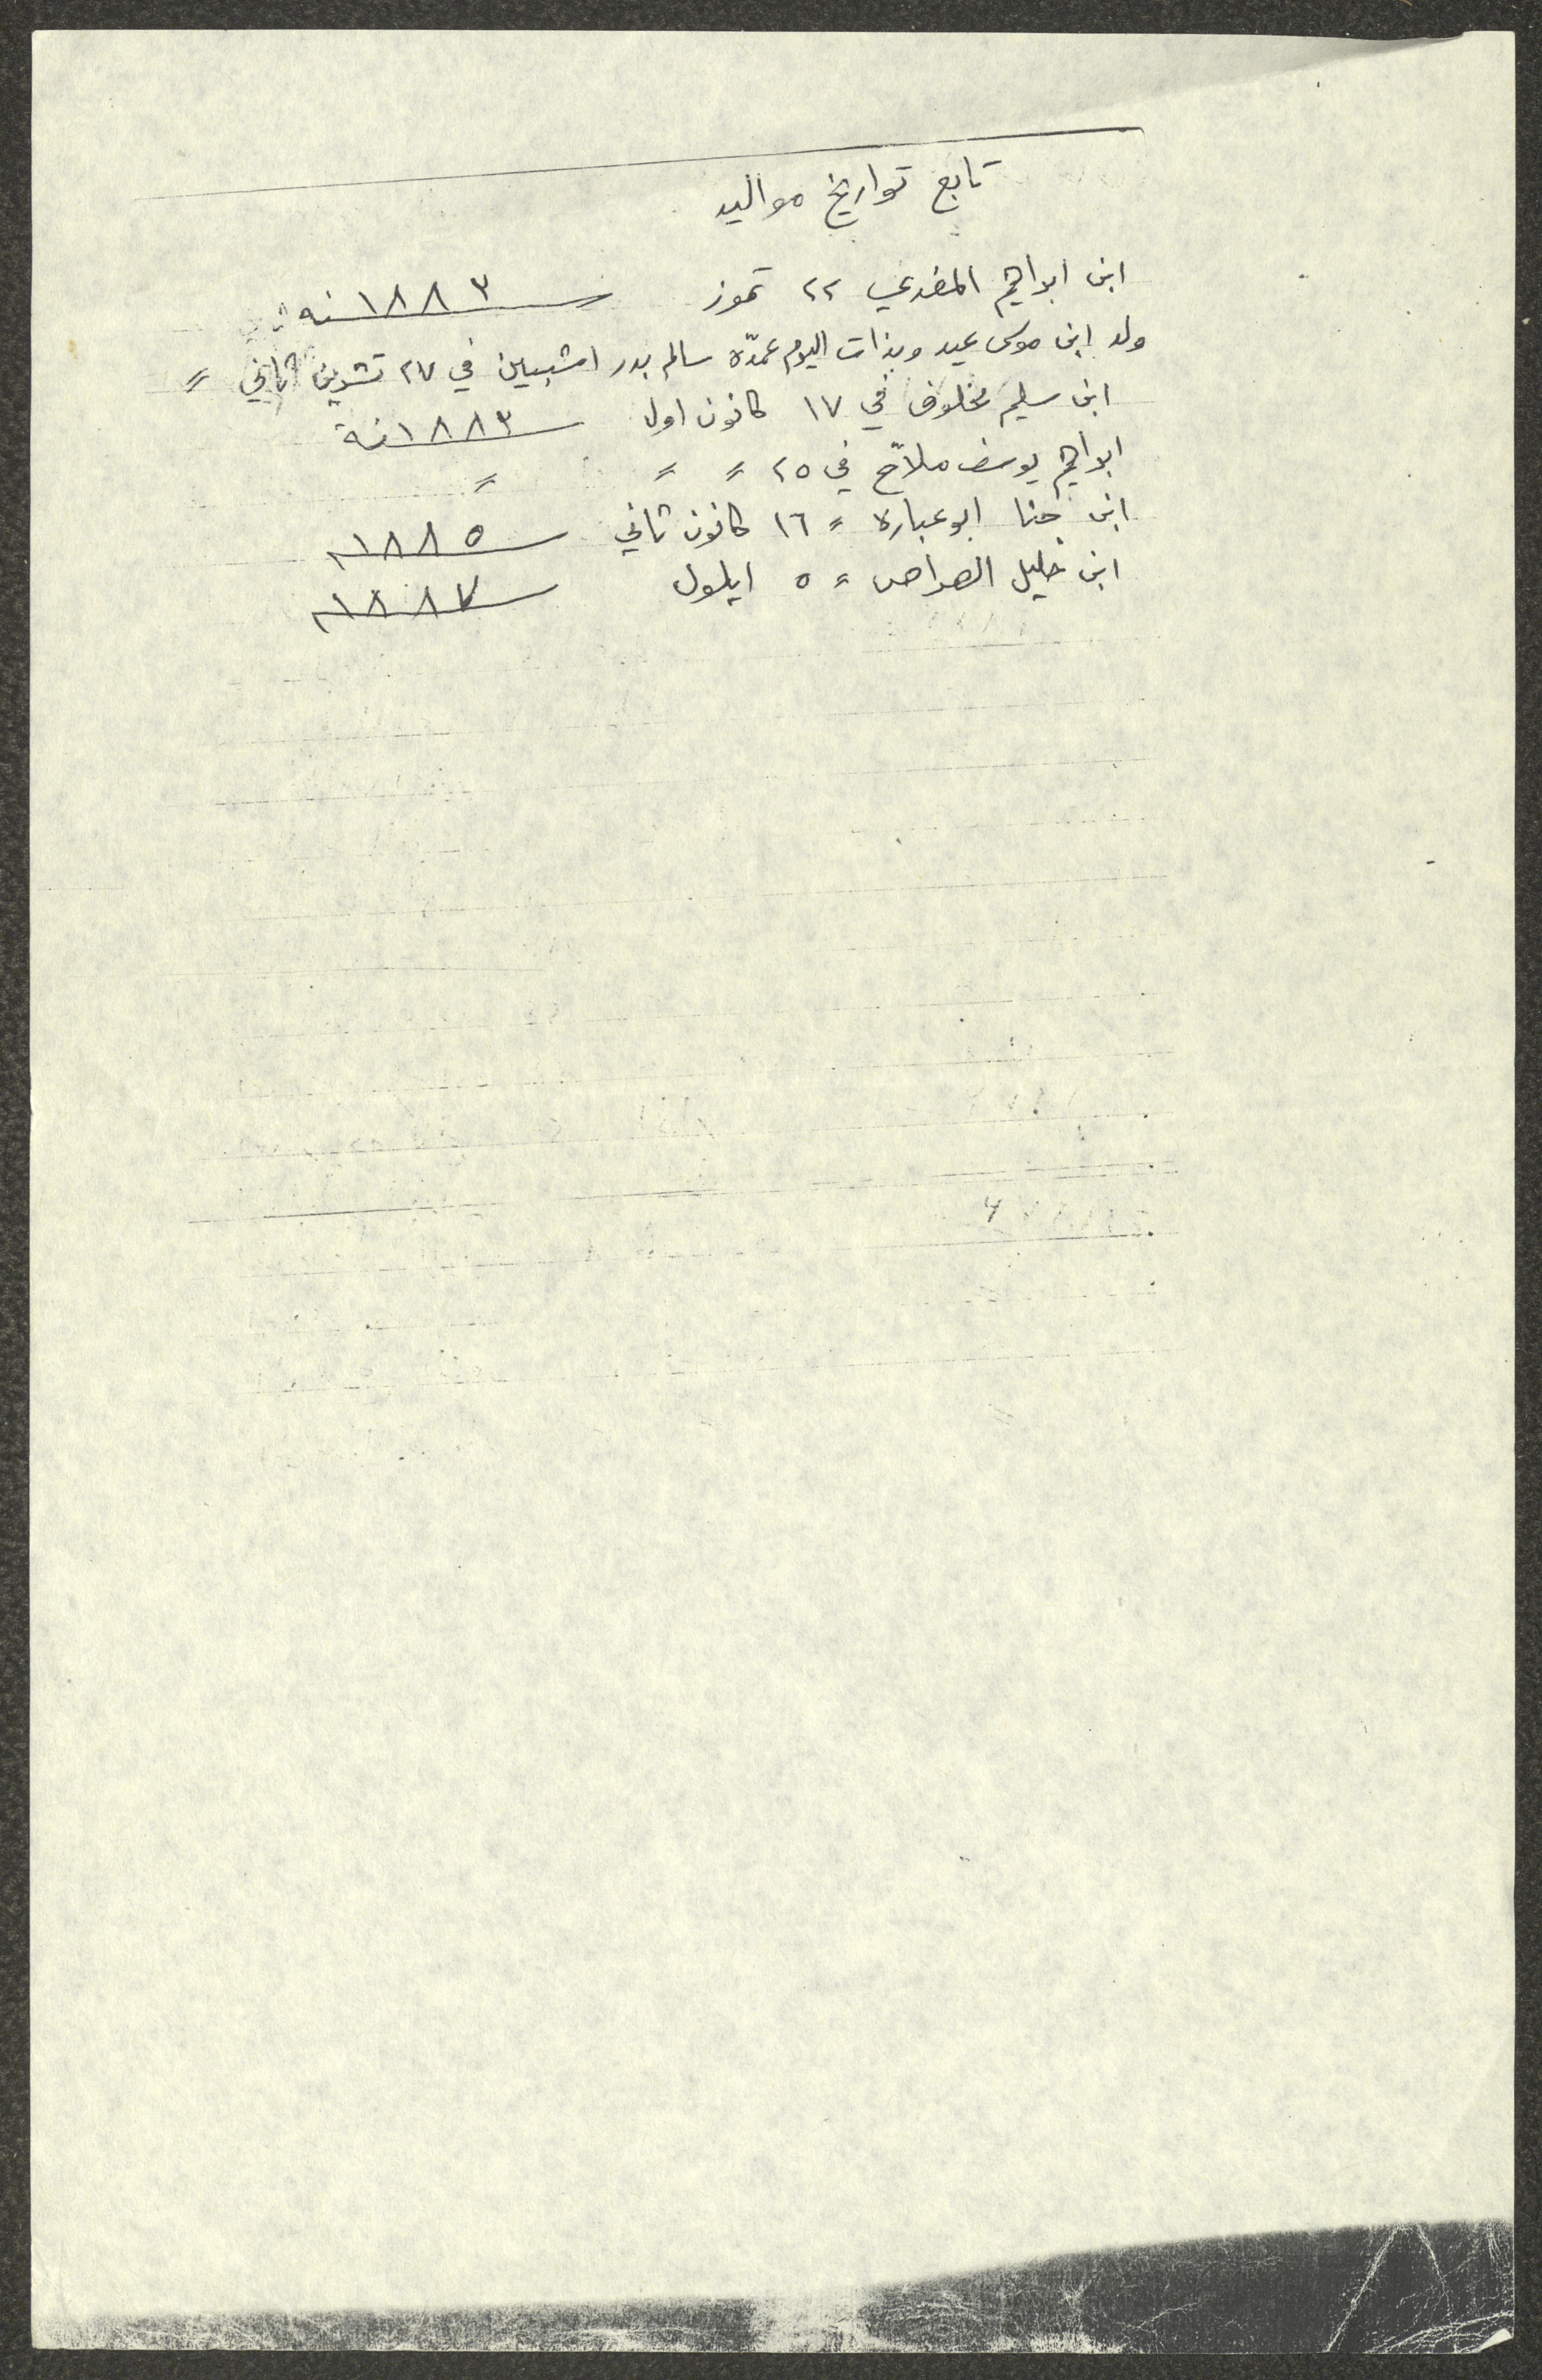 تابع تواريخ مواليد
ابن ابراهيم المغربي ٢٢ تموز سنه ١٨٨٣
ولد ابن موسى عيد وبذات اليوم عمدّه سالم بدر اشبيين في ٢٧ تشرين ثاني =
ابن سليم مخلوف في ١٧ كانون اول سنة ١٨٨٣
ابراهيم يوسف ملاّح في ٢٥ = = =
ابن حنا ابو عباره = ١٦ كانون ثاني ١٨٨٥
ابن خليل الهراس = ٥ ايلول ١٨٨٧